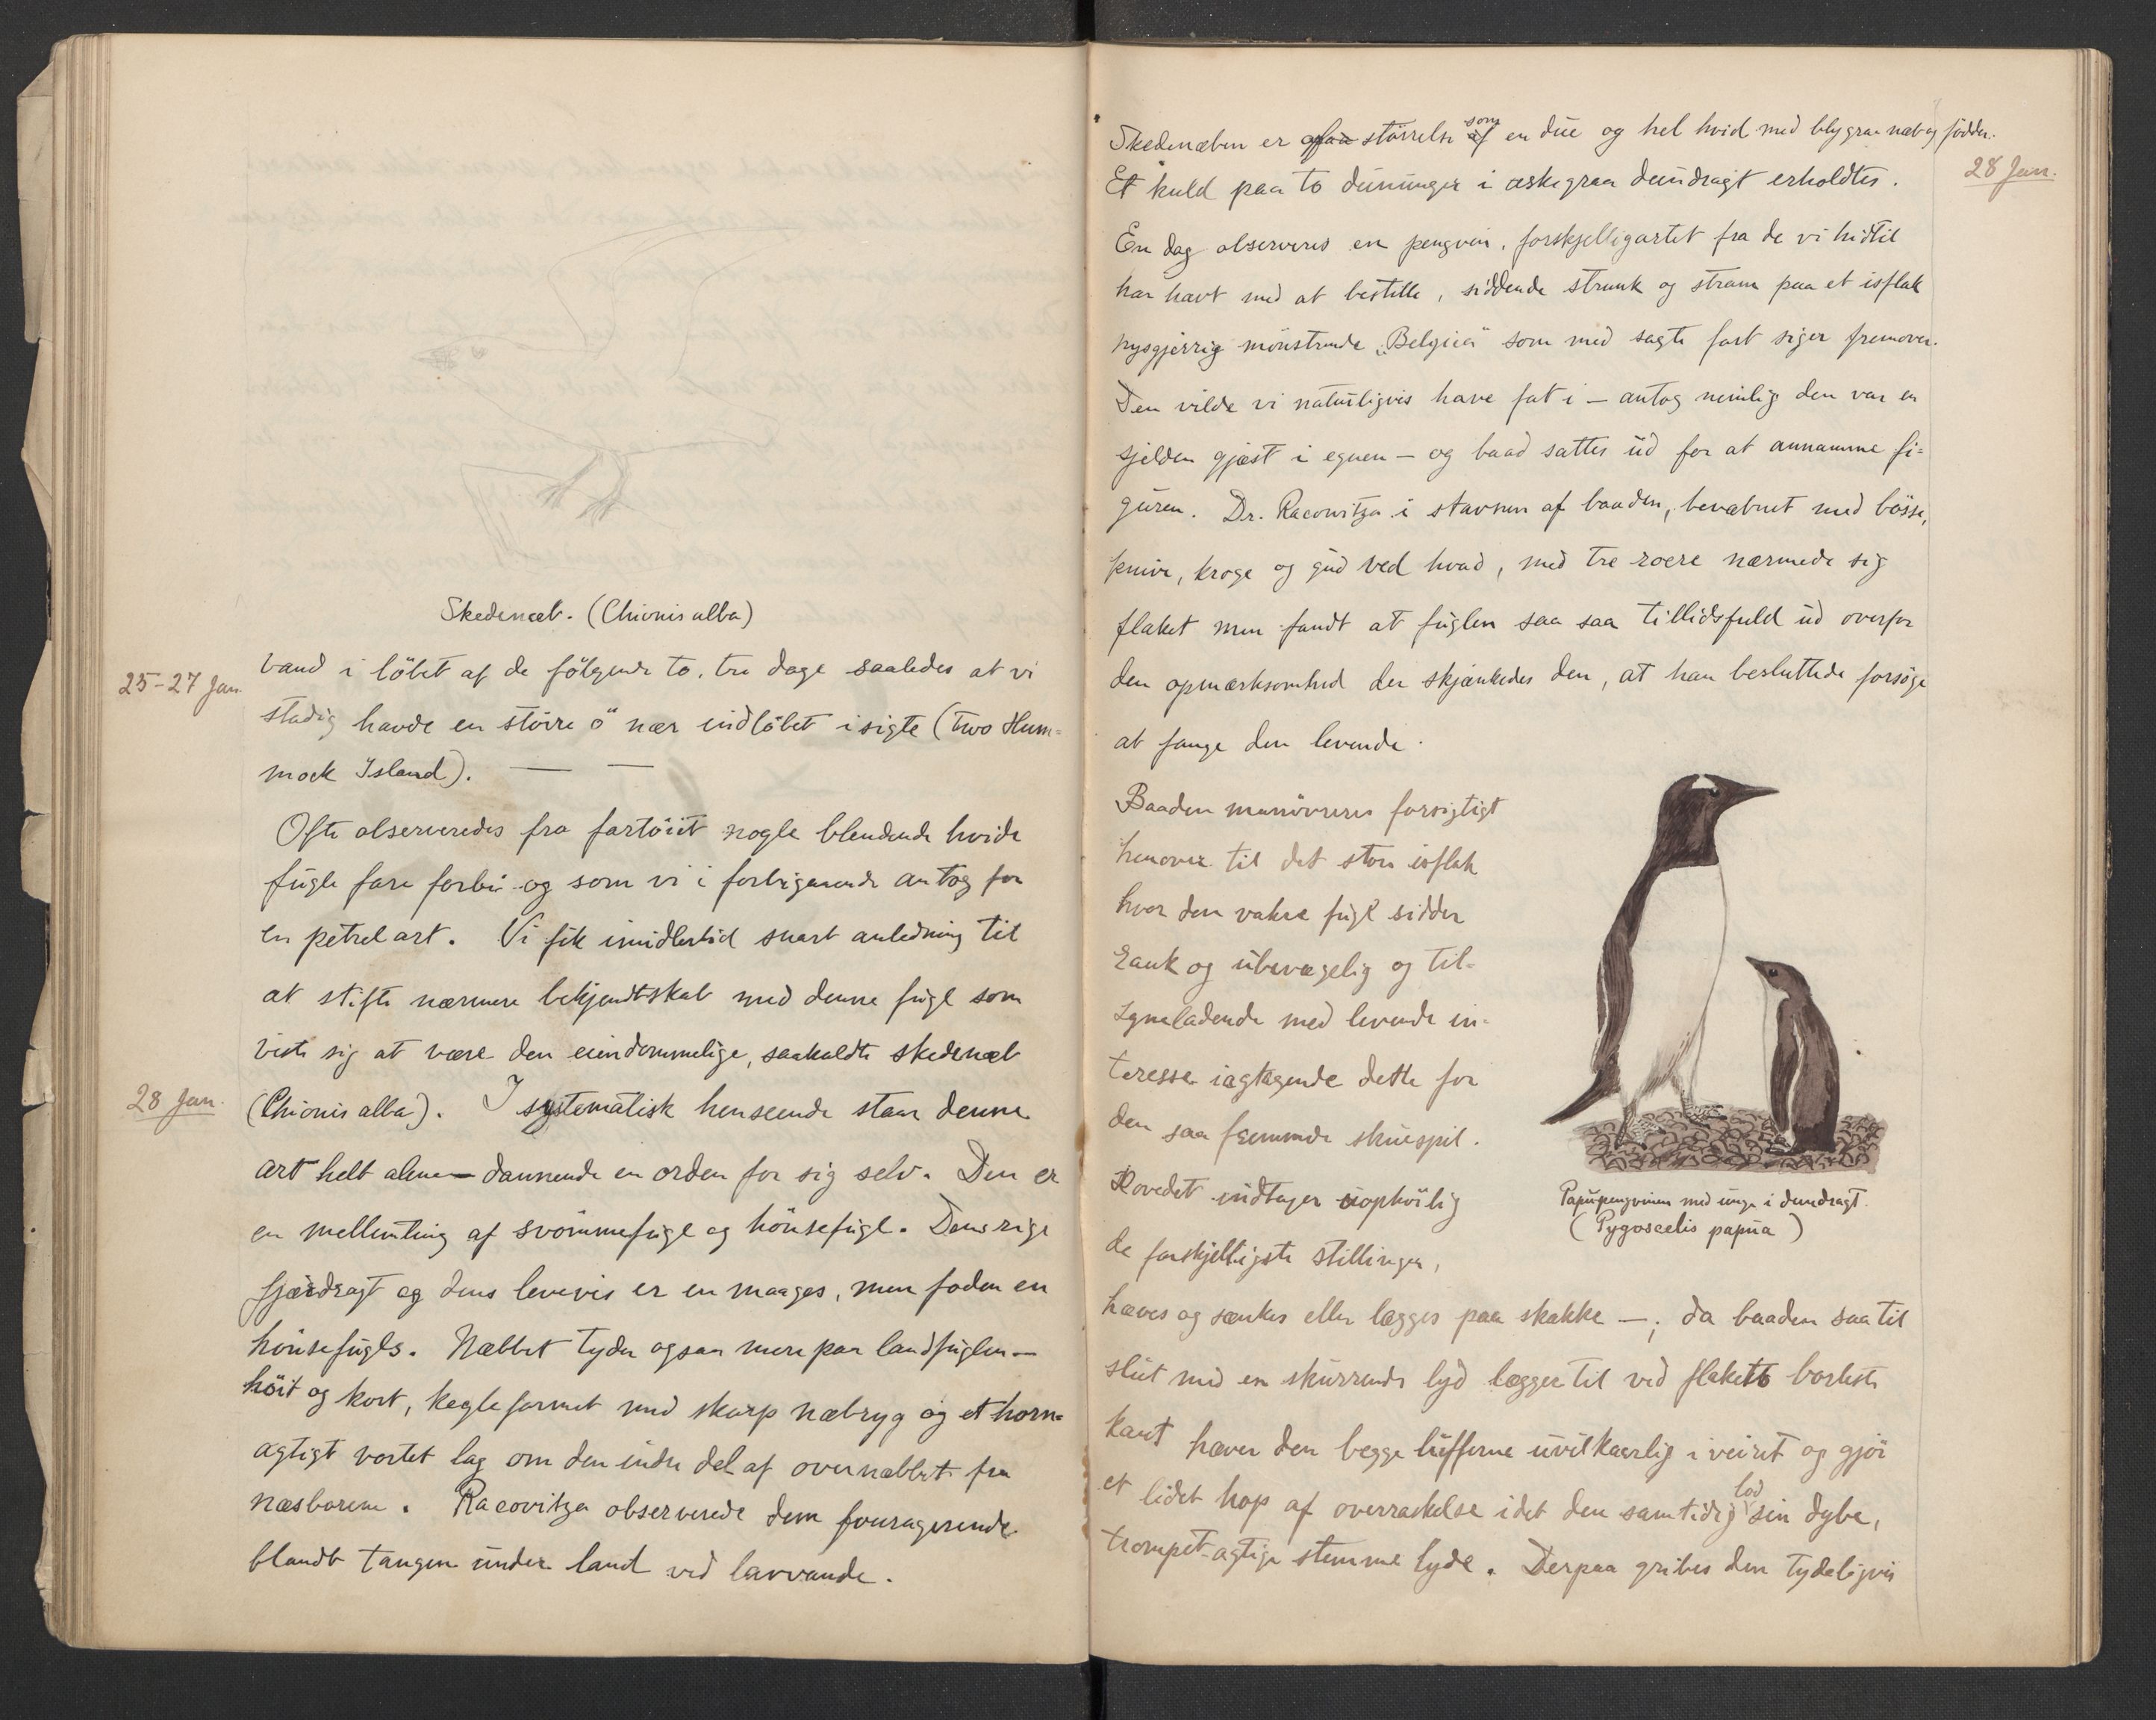 Skedenæb. (Chionis alba)
25-27 Jan.
vand i löbet af de fölgende to, tre dage saaledes at vi
stadig havde en större ö nær indlöbet i sigte (Two Hum=
mock Island). — —
Ofte observeredes fra fartöiet nogle blendende hvide
fugle fare forbi og som vi i forbigaaende antog for
en petrelart. Vi fik imidlertid snart anledning til
at stifte nærmere bekjendtskab med denne fugl som
viste sig at være den eiendommelige, saakaldte skedenæb
28 Jan.
(Chionis alba). I systematisk henseende staar denne
art helt alene — dannende en orden for sig selv. Den er
en mellemting af svömmefugl og hönsefugl. Dens rige
fjærdragt og dens levevis er en maages, men foden en
hönsefugls. Næbbet tyder ogsaa mere paa landfuglen —
höit og kort, kegleformet med skarp næbryg og et horn=
agtigt vortet lag om den indre del af overnæbbet fra
næsborene. Racovitza observerede dem fouragerende
blandt tangen under land ved lavvande.
Skedenæben er störrelse som en due og hel hvid med blygraa næb og födder.
28 Jan.
Et kuld paa to dununger i askegraa dundragt erholdtes.
En dag observeres en pengvin, forskjelligartet fra de vi hidtil
har havt med at bestille, siddende strunk og stram paa et isflak
nysgjerrig mönstrende "Belgica" som med sagte fart siger fremover.
Den vilde vi naturligvis have fat i — antog nemlig den var en
sjelden gjæst i egnen — og baad sattes ud for at annamme fi=
guren. Dr. Racowitza i stavnen af baaden, bevæbnet med bösse,
knive, kroge og gud ved hvad, med tre roere nærmede sig
flaket men fandt at fuglen saa saa tillidsfuld ud overfor
den opmærksomhed der skjænkedes den, at han besluttede forsöge
at fange den levende.
Baaden manövreres forsigtigt
henover til det store isflak
hvor den vakre fugl sidder
rank og ubevægelig og til=
syneladende med levende in=
teresse iagtagende dette for
den saa fremmede skuespil.
Hovedet indtager uophörlig
de forskjelligste stillinger,
Papupengvinen med unge i dundragt.
(Pygoscelis papua)
hæves og sænkes eller lægges paa skakke —; da baaden saa til
slut med en skurrende lyd lægger til ved flakets borteste
kant hæver den begge lufferne uvilkaarlig i veiret og gjör
et lidet hop af overraskelse idet den samtidig lod sin dybe,
trompet-agtige stemme lyde. Derpaa gribes den tydeligvis